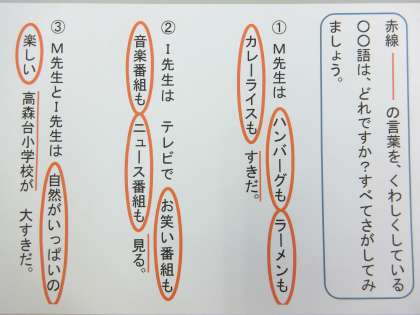 赤線――の言葉を、くわしくしている
〇〇語は、どれですか？すべてさがしてみ
ましょう。
① M先生は ハンバーグも ラーメンも
カレーライスも すきだ。
② I先生は テレビで お笑い番組も
音楽番組も ニュース番組も 見る。
③ M先生とI先生は 自然がいっぱいの
楽しい 高森台小学校が 大すきだ。